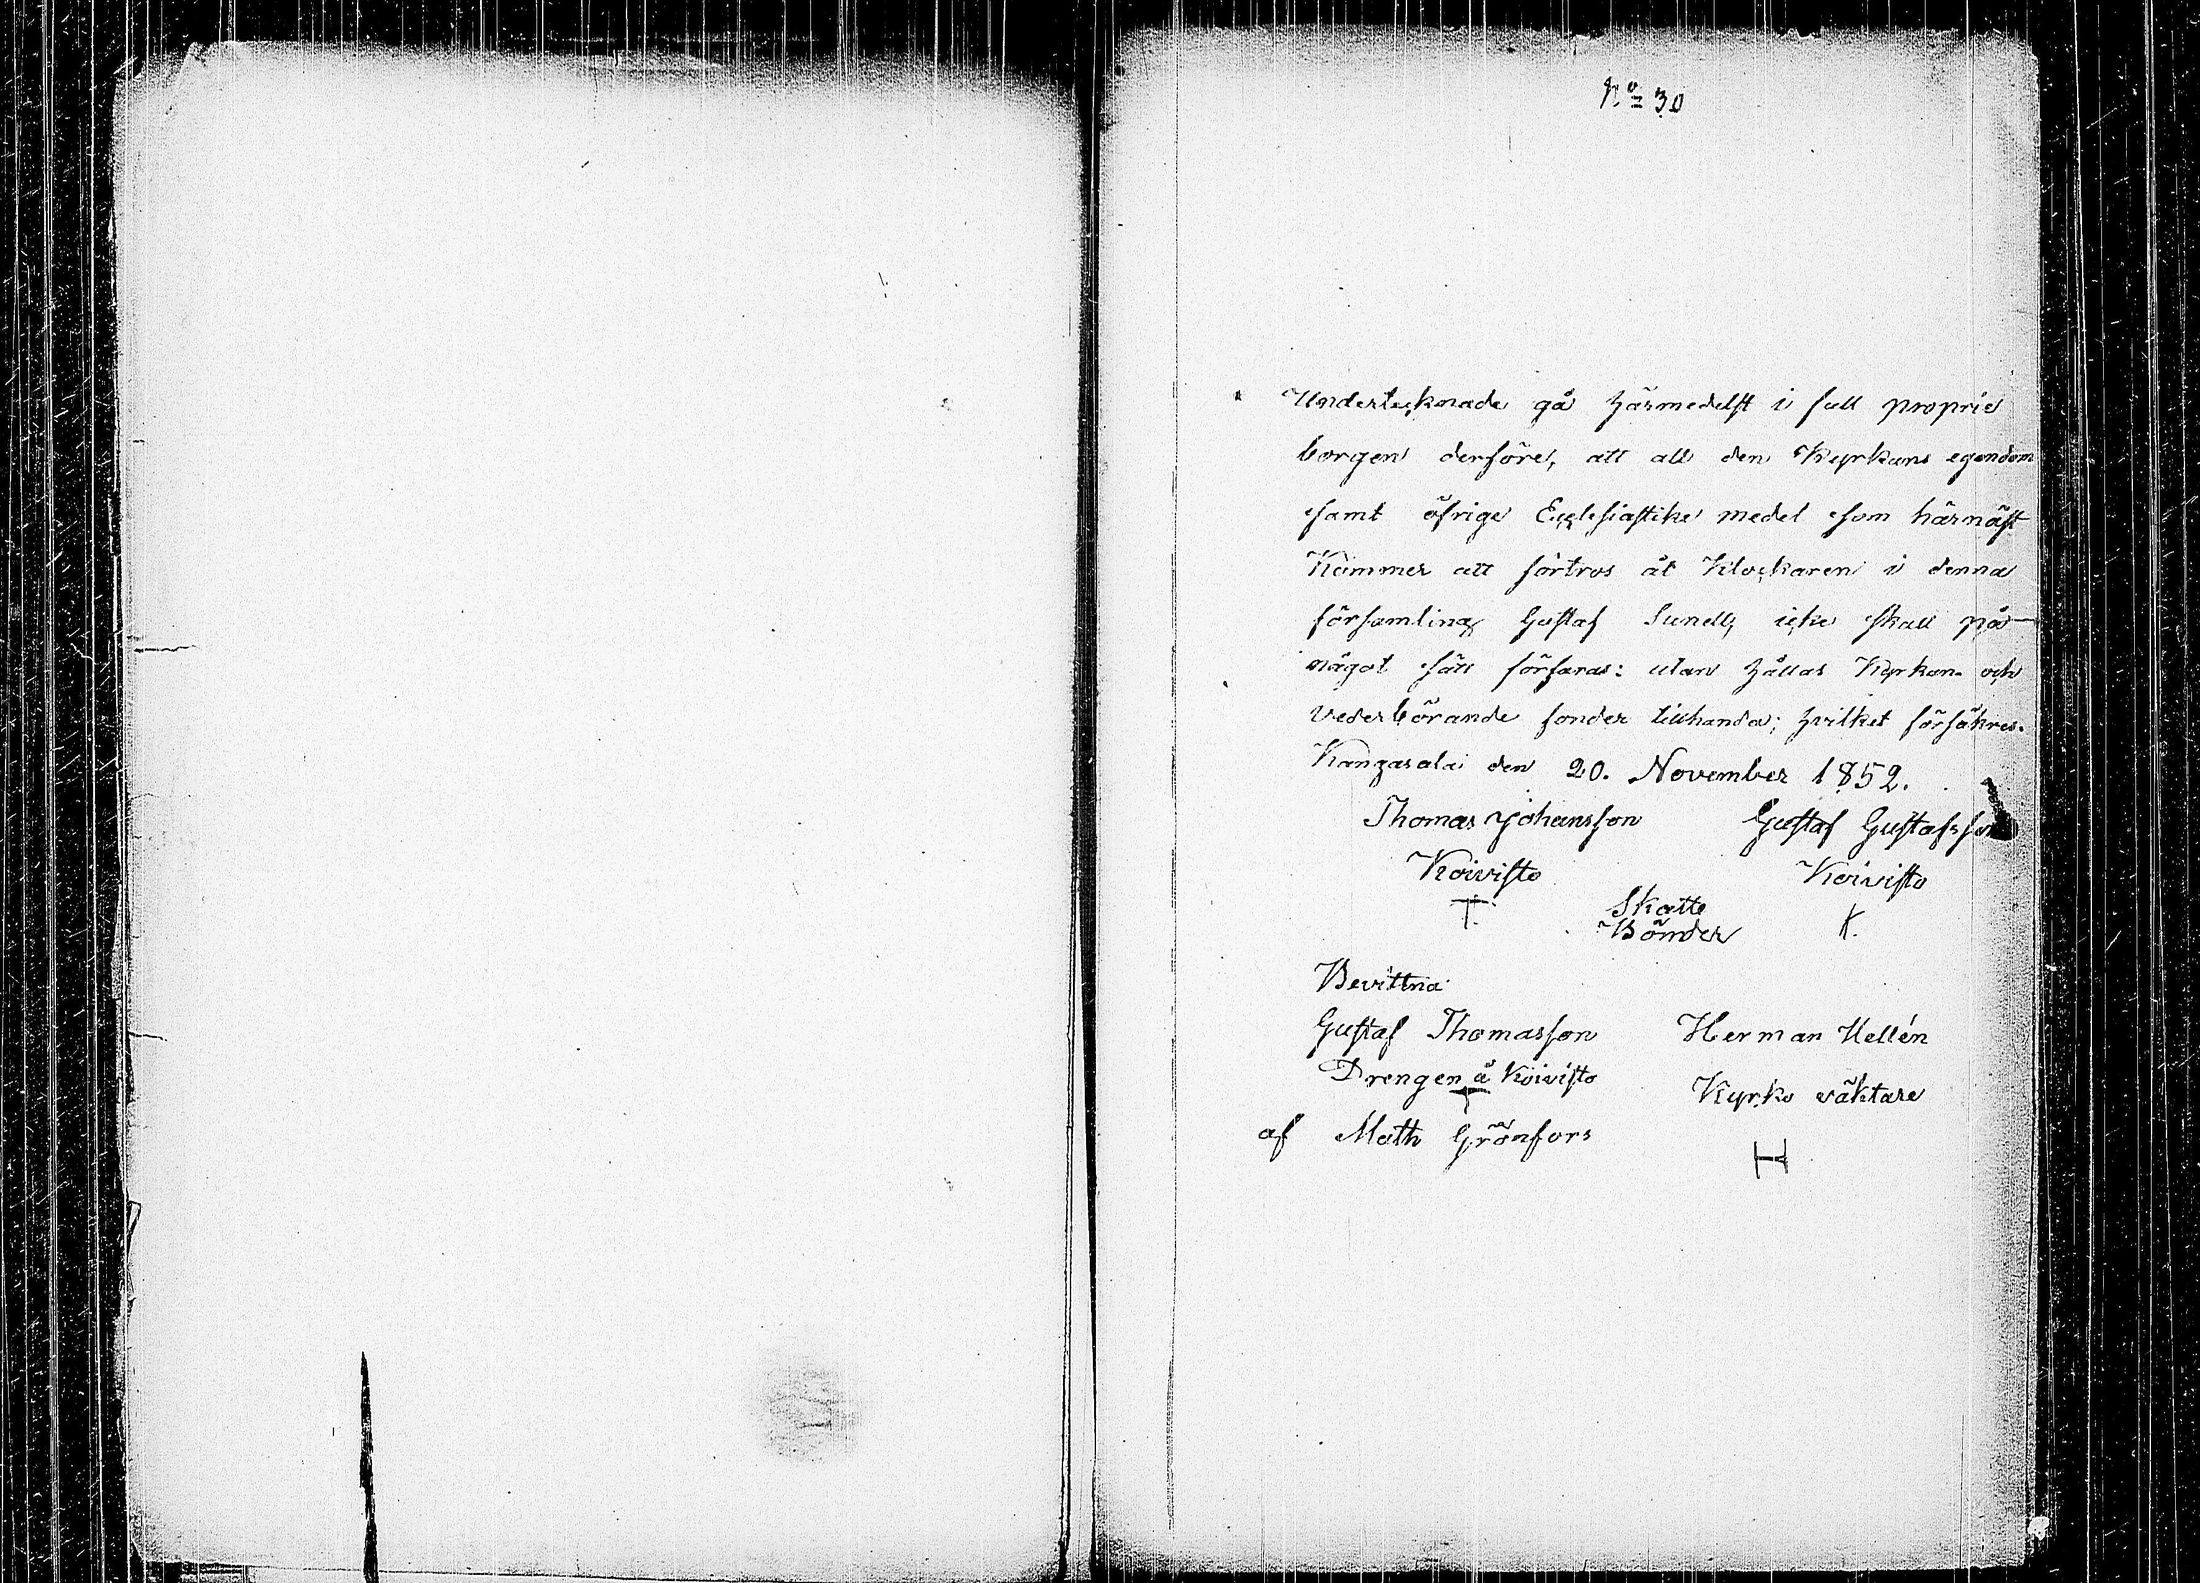 No 30
Undertecknade gå härmedelst i full proprie
borgen derföre, att all den Kyrkans egendom
samt öfrige Ecclesiastike medel som härnäst
Kommer att förtros åt Klockaren i denna
församling Gustaf Sunell, icke skall på
något sätt förfaras: utan hållas Kyrkan och
vederbörande fonder tillhanda; hvilket försäkres.
Kangasala den 20. November 1852.
Thomas Johansson Gustaf Gustafsson
Koivisto Koivisto
T. Skatte K.
Bönder
Bevittna
Gustaf Thomasson Herman Hellén
Drengen å Koivisto Kyrko väktare
af Math Grönfors
H